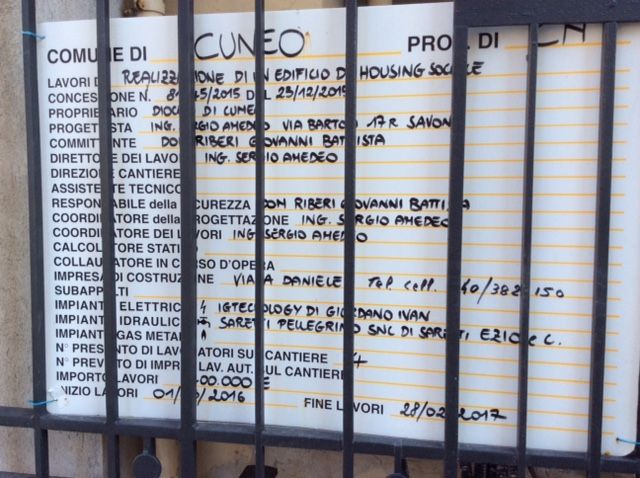 COMUNE DI CUNEO PROV. DI CN
LAVORI DI REALIZZAZIONE DI UN EDIFICIO DI HOUSING SOCIALE
CONCESSIONE N. DEL 23/12/2015
PROPRIETARIO DIOCESI DI CUNEO
PROGETTISTA ING. SERGIO AMEDEO VIA 17R SAVONA
COMMITTENTE DON RIBERI GIOVANNI BATTISTA
DIRETTORE DEI LAVORI ING. SERGIO AMEDEO
DIREZIONE CANTIERE
ASSISTENTE TECNICO
RESPONSABILE della SICUREZZA DON RIBERI GIOVANNI BATTISTA
COORDINATORE della PROGETTAZIONE ING. SERGIO AMEDEO
COORDINATORE DEI LAVORI ING. SERGIO AMEDEO
CALCOLATORE STATICO
COLLAUDATORE IN CORSO D'OPERA
IMPRESA DI COSTRUZIONE VIADA DANIELE Tel. cell.
SUBAPPALTI
IMPIANTI ELETTRICI IGTECNOLOGY DI GIORDANO IVAN
IMPIANTI IDRAULICI SARETTI PELLEGRINO SNC DI SARETTI EZIO e C.
IMPIANTI GAS METANO
N° PRESUNTO DI LAVORATORI SUL CANTIERE 4
N° PREVISTO DI IMPRESE LAV. AUT. SUL CANTIERE
IMPORTO LAVORI
INIZIO LAVORI 2016 FINE LAVORI 2017